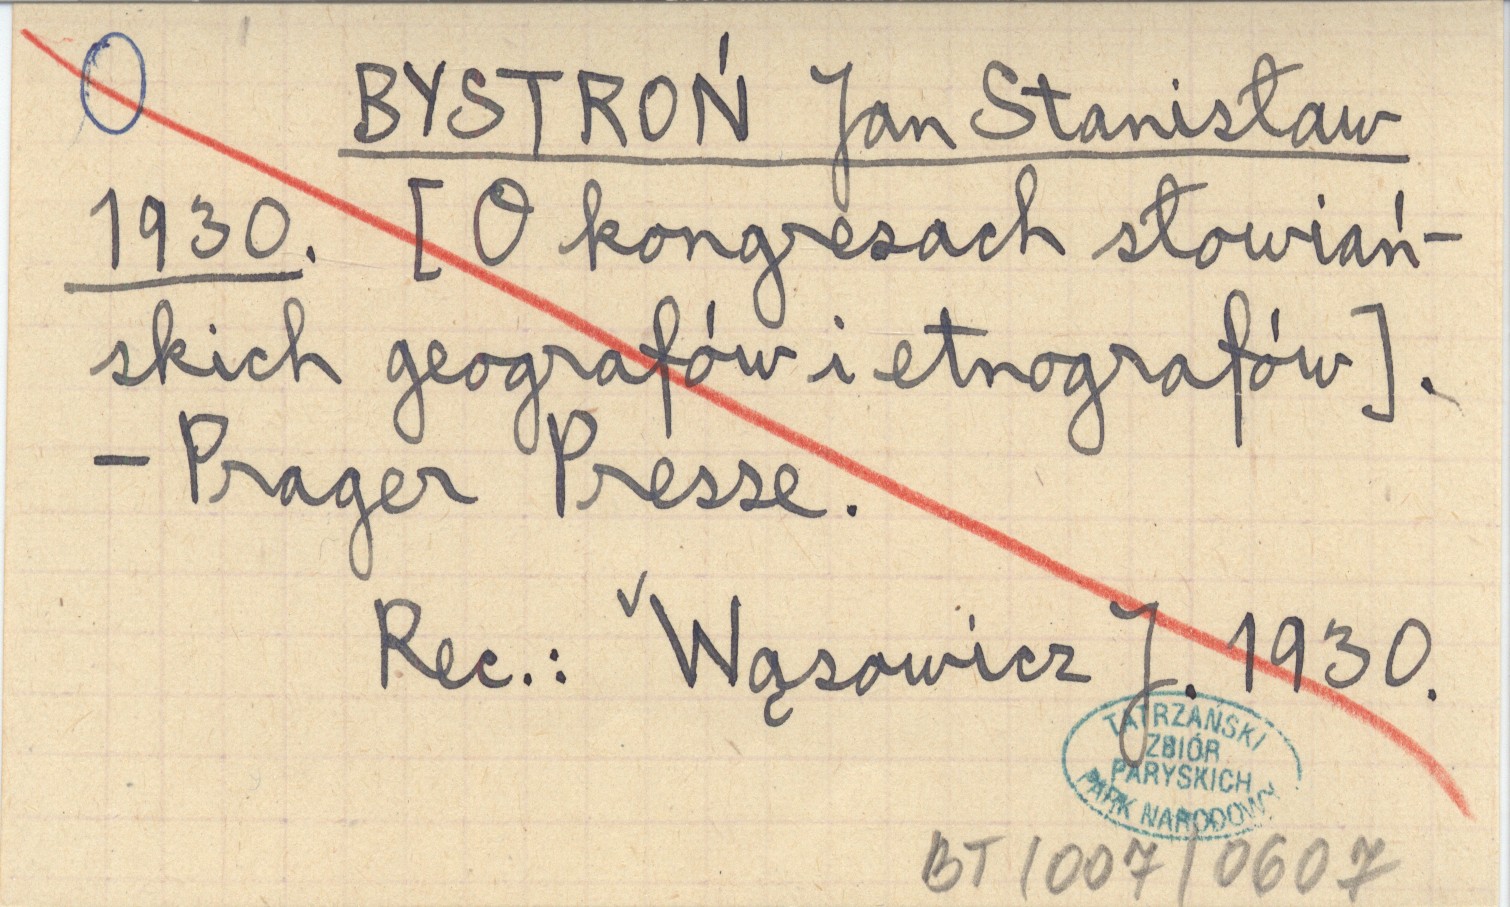 BYSTROŃ Jan Stanisław
1930. [O kongresach słowiań-
skich geografów i etnografów].
- Prager Presse.
Rec.: ✓Wąsowicz J. 1930.
TATRZAŃSKI
ZBIÓR
PARYSKICH
PARK NARODOWY
BT/007/0607